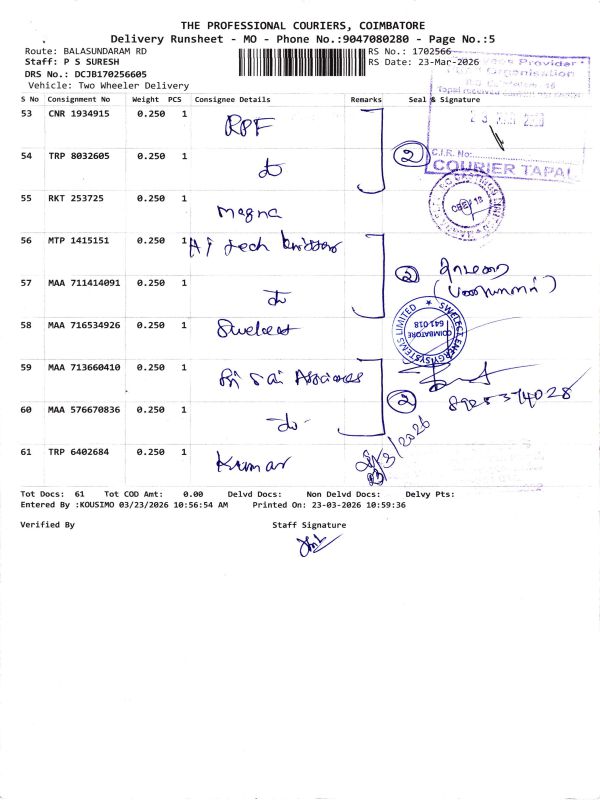 THE PROFESSIONAL COURIERS, COIMBATORE
Delivery Runsheet - MO - Phone No.:9047080280 - Page No.:5
Route: BALASUNDARAM RD
RS No.: 1702566
Staff: P S SURESH
RS Date: 23-Mar-2026
DRS No.: DCJB170256605
Vehicle: Two Wheeler Delivery
S No Consignment No Weight PCS Consignee Details Remarks Seal & Signature
53 CNR 1934915 0.250 1 RPF
54 TRP 8032605 0.250 1 do
2
C.I.R. No:
COURIER TAPAL
55 RKT 253725 0.250 1 Magna
CBE 18
56 MTP 1415151 0.250 1
57 MAA 711414091 0.250 1 do
2
58 MAA 716534926 0.250 1 Swelect
SWELECT ENERGY SYSTEMS LIMITED
COIMBATORE
641 018
59 MAA 713660410 0.250 1 Sri Sai Associates
60 MAA 576670836 0.250 1 do
2
8925374028
61 TRP 6402684 0.250 1 Kumar
Tot Docs: 61 Tot COD Amt: 0.00 Delvd Docs: Non Delvd Docs: Delvy Pts:
Entered By :KOUSIMO 03/23/2026 10:56:54 AM Printed On: 23-03-2026 10:59:36
Verified By Staff Signature